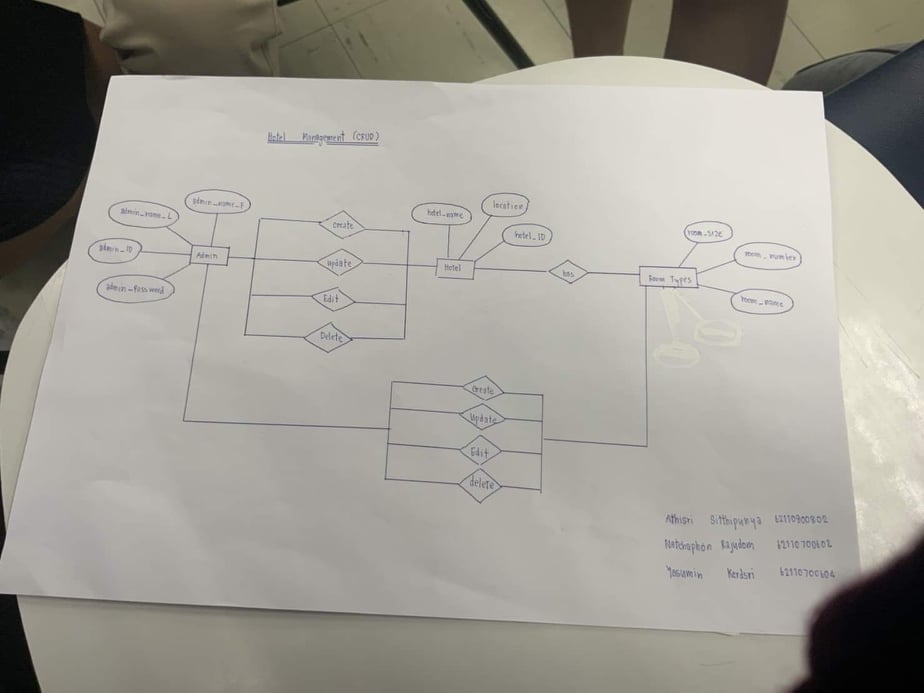 Hotel Management (CRUD)
admin_name_L
admin_name_F
admin_ID
admin_Password
Admin
Create
Update
Edit
Delete
hotel_name
location
hotel_ID
Hotel
has
room_size
room_number
room_name
Room Types
Create
Update
Edit
delete
Athisri Sitthipunya 62110900802
Natchaphon Rajudom 62110700602
Yosumin Kerdsri 62110700604